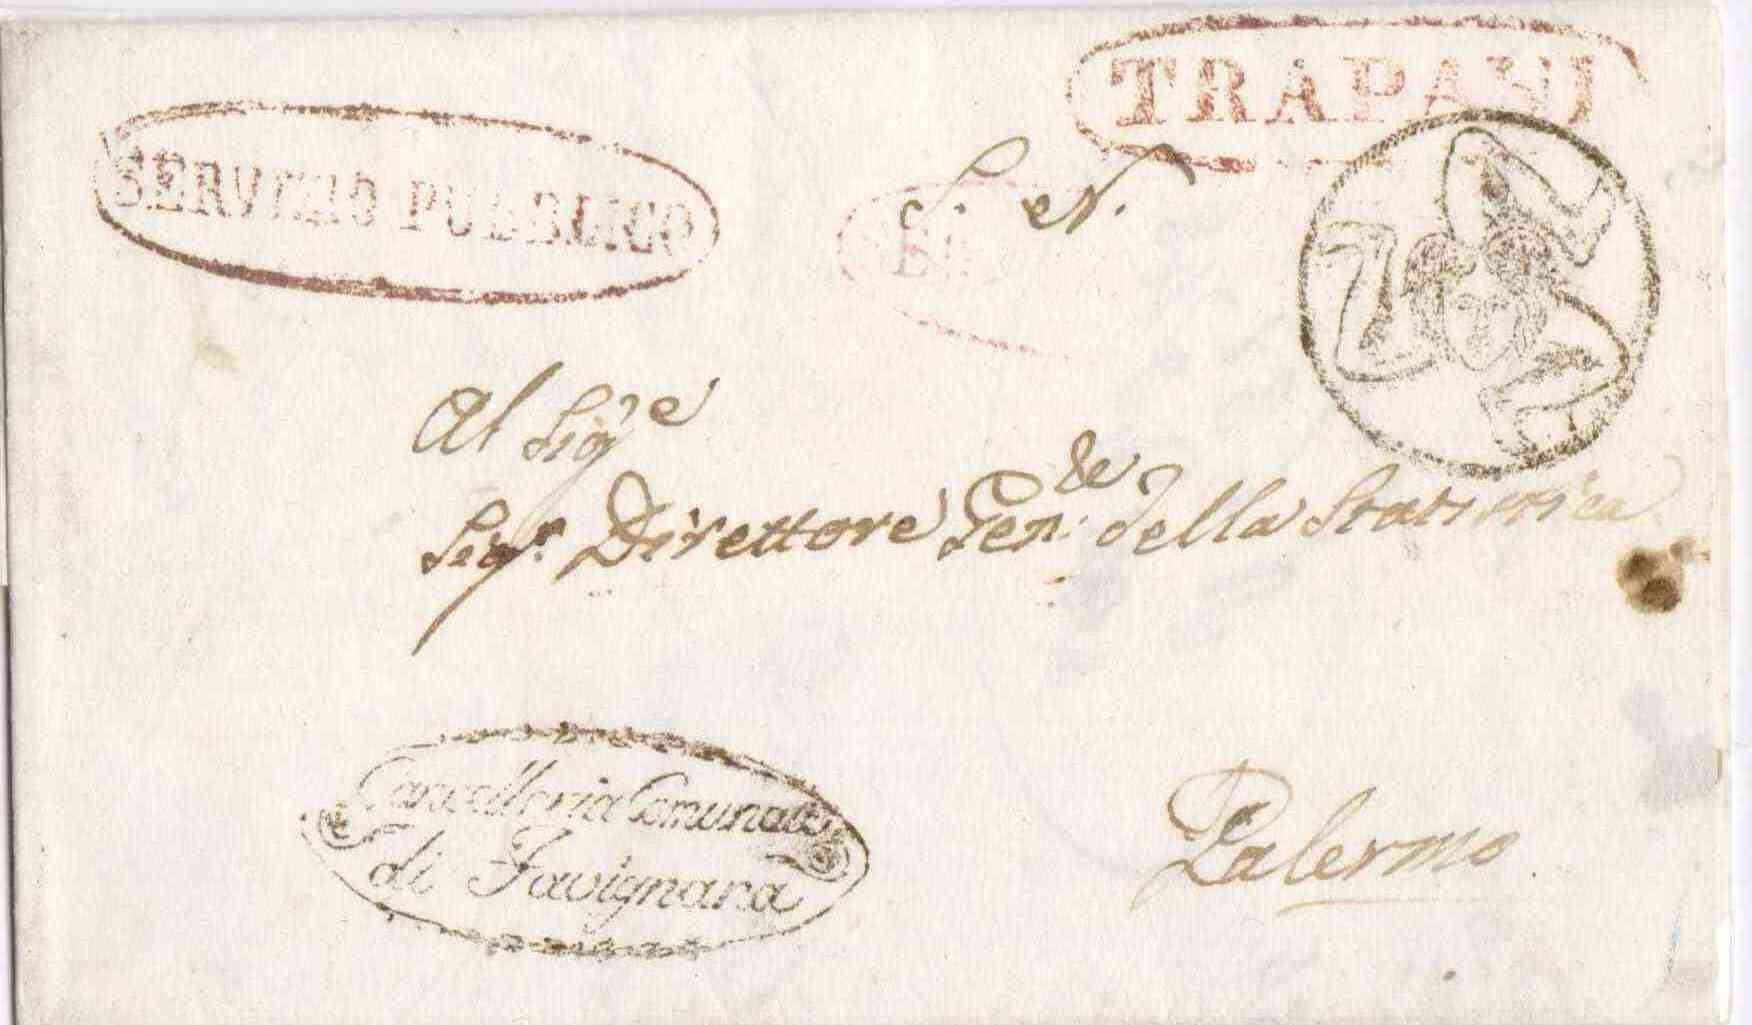 TRAPANI
SERVIZIO PUBBLICO
S. N.
Al Sig.re
Sig.r Direttore Gen.le della Statistica
Cancelleria Comunale
di Favignana
Palermo